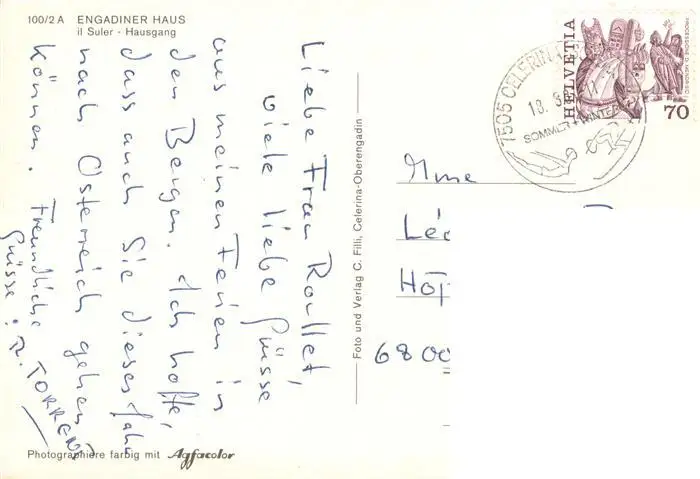 100/2 A ENGADINER HAUS
il Suler - Hausgang
Liebe Frau Roullet,
viele liebe Grüsse
aus meinen Ferien in
den Bergen. Ich hoffe,
dass auch Sie dieses Jahr
nach Österreich gehen
können. Freundliche
Grüsse: R. TORRENT
Photographiere farbig mit Agfacolor
Foto und Verlag C. Filli, Celerina-Oberengadin
7505 CELERIN
SOMMER + WINTER
HELVETIA
70
Mme
Léc
Hôp
6800